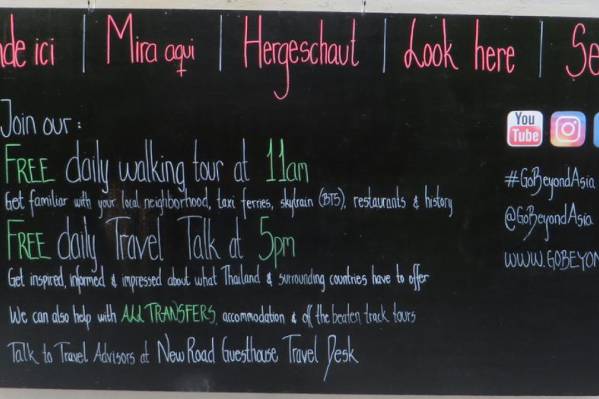 ici | Mira aqui | Hergeschaut | Look here |
Join our:
FREE daily walking tour at 11am
Get familiar with your local neighborhood, taxi ferries, skytrain (BTS), restaurants & history
FREE daily Travel Talk at 5pm
Get inspired, informed & impressed about what Thailand & surrounding countries have to offer
We can also help with ALL TRANSFERS, accommodation & off the beaten track tours
Talk to Travel Advisors at New Road Guesthouse Travel Desk
You
Tube
#GoBeyondAsia
@GoBeyondAsia